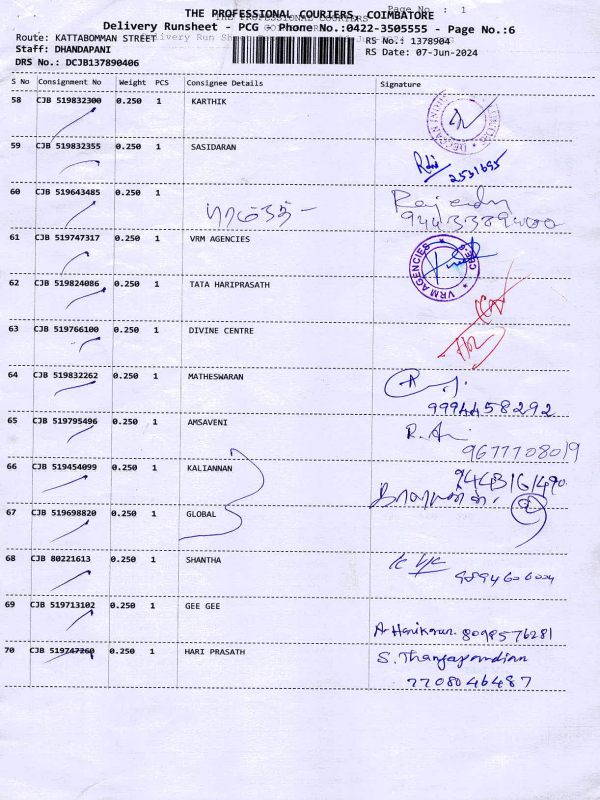 Page No. : 1
THE PROFESSIONAL COURIERS, COIMBATORE
Delivery Runsheet - PCG - Phone No.:0422-3505555 - Page No.:6
Route: KATTABOMMAN STREET
RS No.: 1378904
Staff: DHANDAPANI
RS Date: 07-Jun-2024
DRS No.: DCJB137890406
S No Consignment No Weight PCS Consignee Details Signature
58 CJB 519832300 0.250 1 KARTHIK
59 CJB 519832355 0.250 1 SASIDARAN
2531695
60 CJB 519643485 0.250 1
61 CJB 519747317 0.250 1 VRM AGENCIES
VRM AGENCIES
62 CJB 519824086 0.250 1 TATA HARIPRASATH
63 CJB 519766100 0.250 1 DIVINE CENTRE
64 CJB 519832262 0.250 1 MATHESWARAN
9994458292
65 CJB 519795496 0.250 1 AMSAVENI
9677708019
66 CJB 519454099 0.250 1 KALIANNAN
9443161490
67 CJB 519698820 0.250 1 GLOBAL
68 CJB 80221613 0.250 1 SHANTHA
69 CJB 519713102 0.250 1 GEE GEE
A. Harikaran. 8098576281
70 CJB 519747260 0.250 1 HARI PRASATH
S. Thangapandian
7708046487